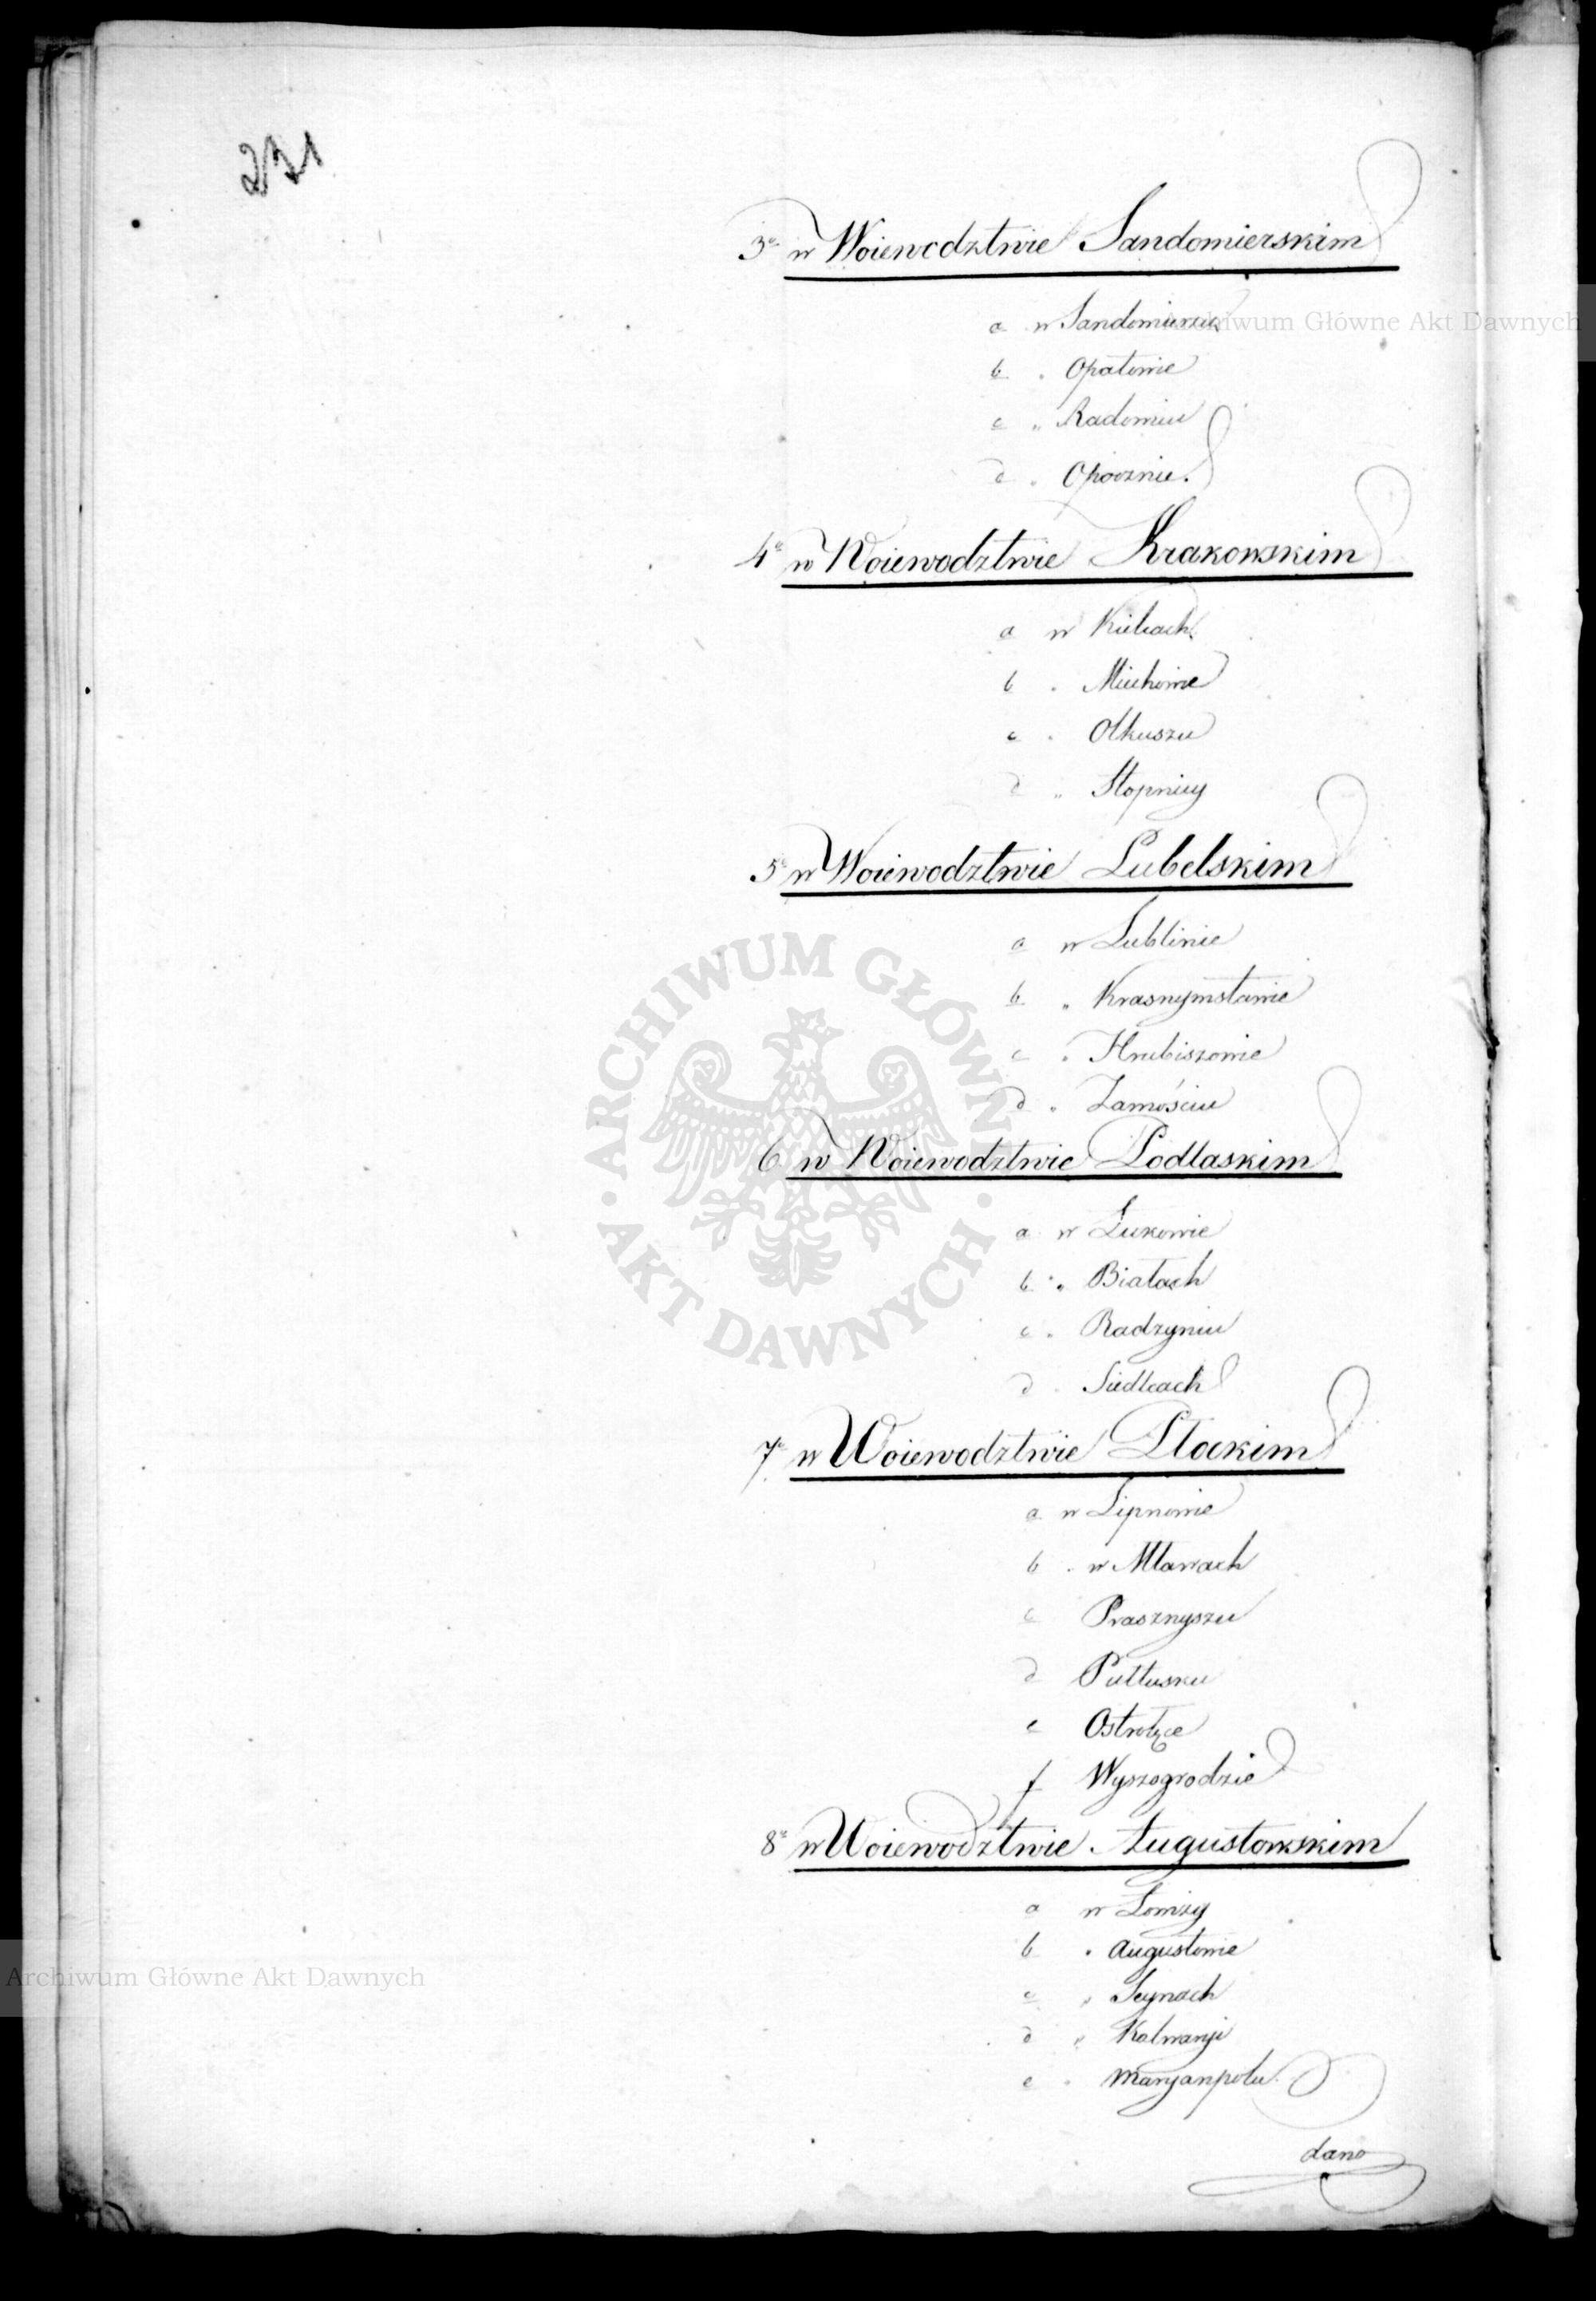 271
3º w Woiewodztwie Sandomierskim
a w Sandomierzu
b " Opatowie
c " Radomiu
d " Opocznie.
4º w Woiewodztwie Krakowskim
a w Kielcach
b " Miechowie
c " Olkuszu
d " Stopnicy
5º w Woiewodztwie Lubelskim
a w Lublinie
b " Krasnymstawie
c " Hrubiszowie
d " Zamościu
6 w Woiewodztwie Podlaskim
a w Łukowie
b " Białach
c " Radzyniu
d " Siedlcach
7º w Woiewodztwie Płockim
a w Lipnowie
b " w Mławach
c Prasznyszu
d Pułtusku
e Ostrołęce
f Wyszogrodzie
8º w Woiewodztwie Augustowskim
a w Łomży
b " Augustowie
c " Seynach
d " Kalwaryi
e " Maryanpolu.
dano
Archiwum Główne Akt Dawnych
ARCHIWUM GŁÓWNE · AKT DAWNYCH ·
Archiwum Główne Akt Dawnych